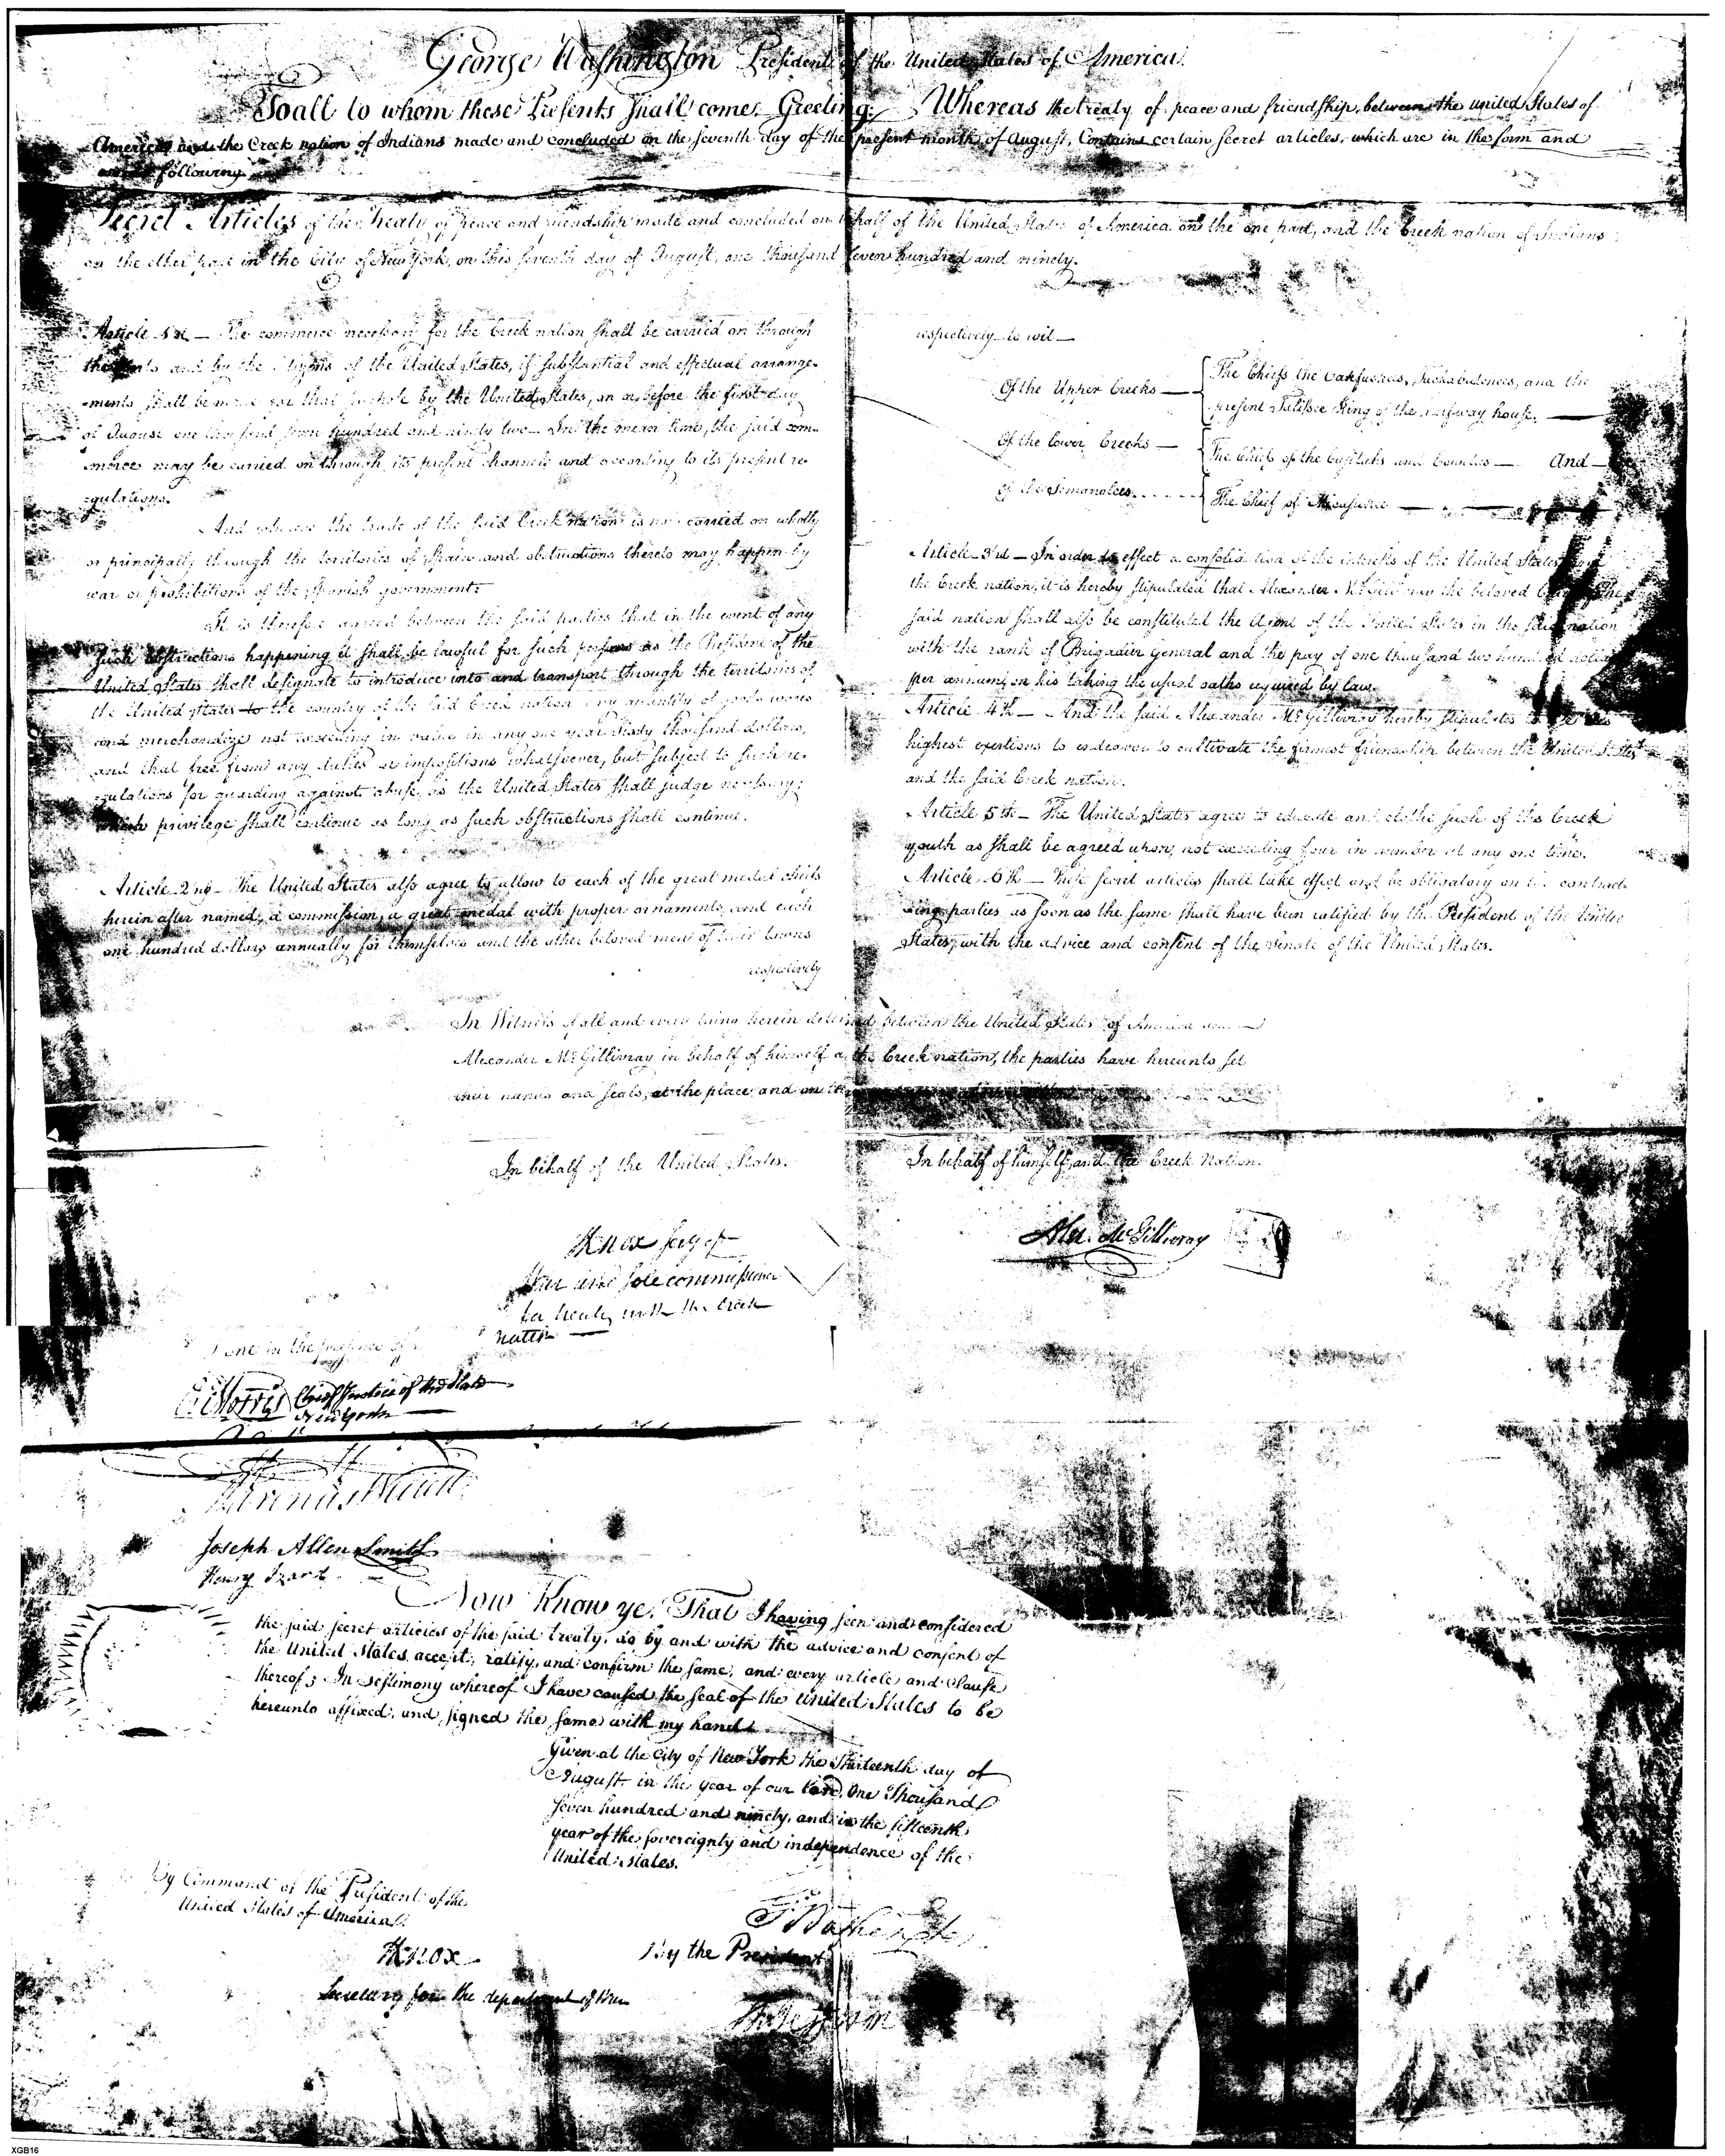 George Washington President of the United States of America.
To all to whom these Presents shall come. Greeting: Whereas the treaty of peace and friendship, between the united States of
America and the Creek nation of Indians made and concluded on the seventh day of the present month of August, Contains certain secret articles, which are in the form and
words following
Secret Articles of the Treaty of peace and friendship made and concluded on behalf of the United States of America on the one part, and the Creek nation of Indians
on the other part in the City of New York, on this seventh day of August, one thousand seven hundred and ninety.
Article 1st — The commerce necessary for the Creek nation shall be carried on through
the ports and by the citizens of the United States, if substantial and effectual arrange-
-ments shall be made for that purpose by the United States, on or before the first day
of August one thousand seven hundred and ninety two — In the mean time, the said com-
-merce may be carried on through its present channels and according to its present re
-gulations.
And whereas the trade of the said Creek nation is now carried on wholly
or principally through the territories of Spain and obstructions thereto may happen by
war or prohibitions of the Spanish government.
It is therefore agreed between the said parties that in the event of any
such obstructions happening it shall be lawful for such persons as the President of the
United States shall designate to introduce into and transport through the territories of
the United States to the country of the said Creek nation any quantity of goods wares
and merchandize not exceeding in value in any one year Sixty thousand dollars,
and that free from any duties or impositions whatsoever, but subject to such re-
-gulations for guarding against abuse, as the United States shall judge necessary;
which privilege shall continue as long as such obstructions shall continue.
Article 2nd — The United States also agree to allow to each of the great medal chiefs
herein after named, a commission, a great medal with proper ornaments, and each
one hundred dollars annually for themselves and the other beloved men of their towns
respectively
respectively to wit —
Of the Upper Creeks — The Chiefs the Oakfuskees, Tuckabatchees, and the
present Talisse King of the halfway house. —
Of the lower Creeks — The Chiefs of the Cusitahs and Cowetas — And —
of the Semanolees. The Chief of Micasukee —
Article 3rd — In order to effect a consolidation of the interests of the United States and
the Creek nation, it is hereby stipulated that Alexander McGillivray the beloved Chief of the
said nation shall also be constituted the Agent of the United States in the said nation
with the rank of Brigadier General and the pay of one thousand two hundred dollars
per annum, on his taking the usual oaths required by law.
Article 4th — And the said Alexander McGillivray hereby stipulates to use his
highest exertions to endeavor to cultivate the firmest friendship between the United States
and the said Creek nation.
Article 5th — The United States agree to educate and clothe such of the Creek
youth as shall be agreed upon, not exceeding four in number at any one time.
Article 6th — These secret articles shall take effect and be obligatory on the contract-
-ing parties as soon as the same shall have been ratified by the President of the United
States, with the advice and consent of the Senate of the United States.
In Witness of all and every thing herein determined between the United States of America and
Alexander McGillivray in behalf of himself and the Creek nation, the parties have hereunto set
their names and seals, at the place and on the
In behalf of the United States.
In behalf of himself and the Creek Nation.
HKnox Secy of
War and sole commissioner
for treaty with the Creek
nation —
Alex. McGillivray
Done in the presence of
Morris Chief Justice of the State
New York
Marinus Willett
Joseph Allen Smith
Henry Izard
Now Know ye, That I having seen and considered
the said secret articles of the said treaty, do by and with the advice and consent of
the United States accept, ratify, and confirm the same, and every article and Clause
thereof; In testimony whereof I have caused the seal of the united States to be
hereunto affixed, and signed the same with my hand.
Given at the City of New York the thirteenth day of
August, in the year of our Lord, One Thousand
seven hundred and ninety, and in the fifteenth
year of the sovereignty and independence of the
United States.
By Command of the President of the
United States of America.
HKnox
Secretary for the department of War
G Washington
By the President
Th: Jefferson
XGB16